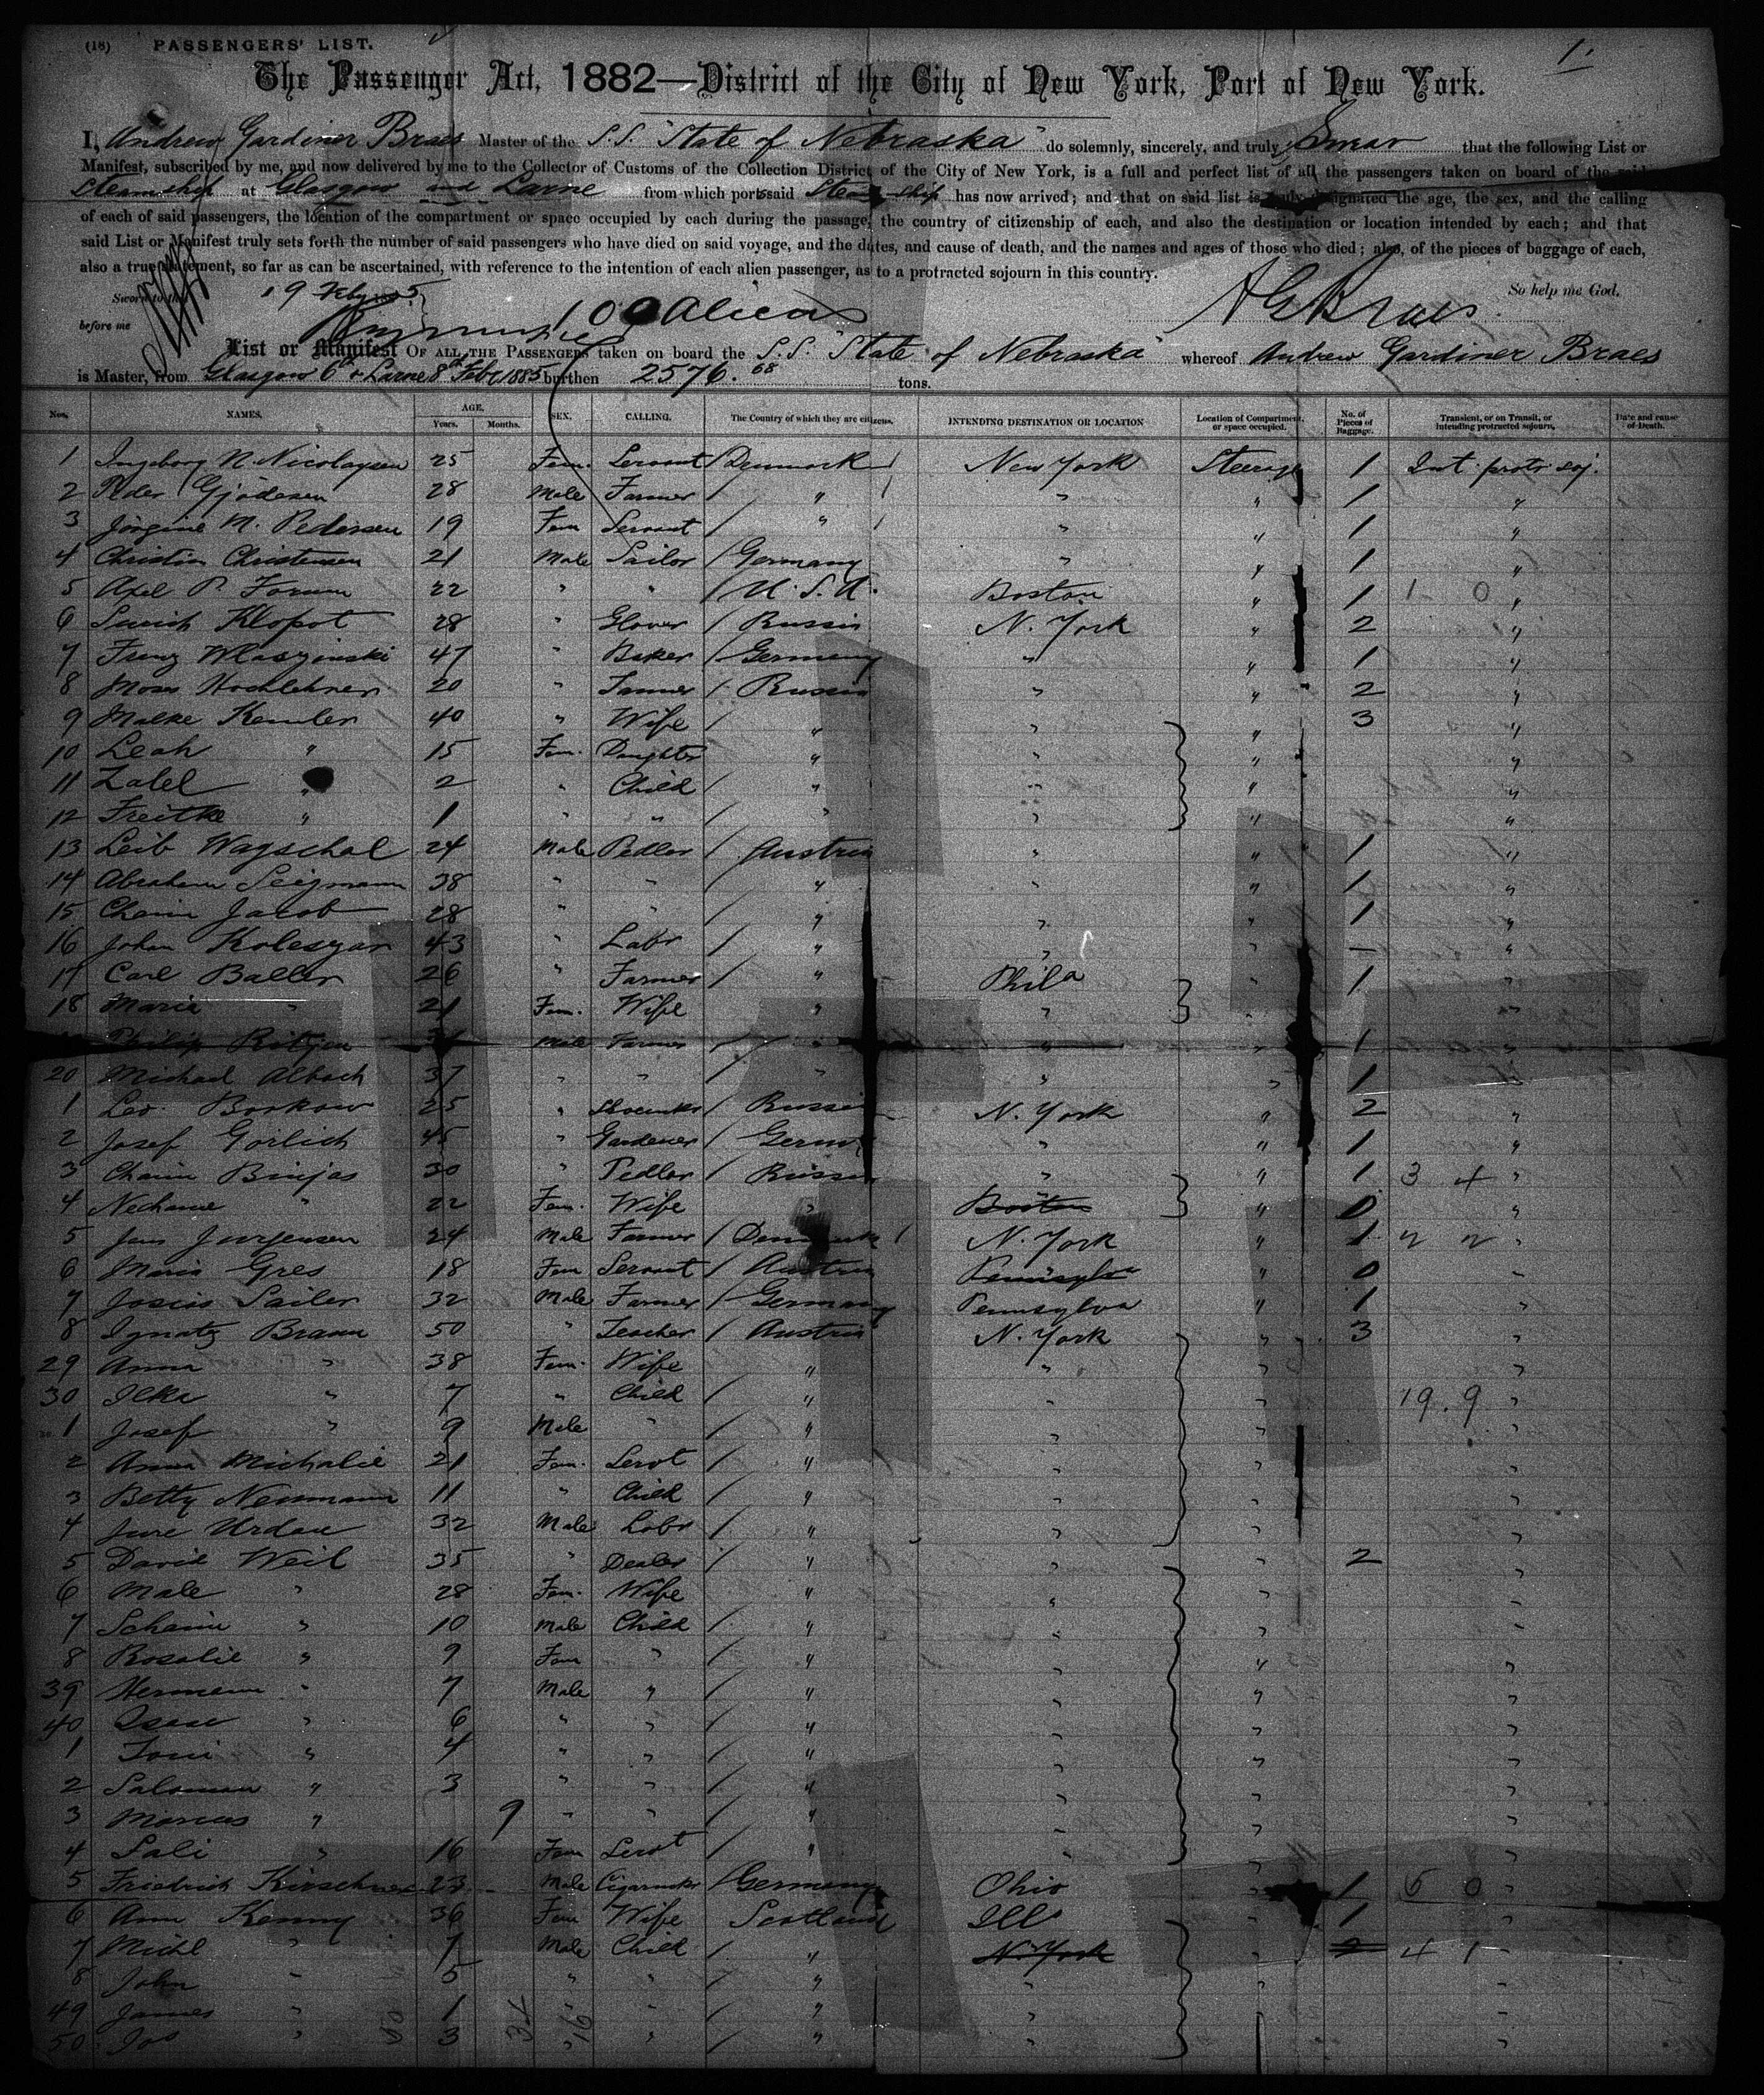 (18) PASSENGERS' LIST. 1.
The Passenger Act, 1882—District of the City of New York, Port of New York.
I, Andrew Gardiner Braes Master of the S.S. "State of Nebraska" do solemnly, sincerely, and truly Swear that the following List or
Manifest, subscribed by me, and now delivered by me to the Collector of Customs of the Collection District of the City of New York, is a full and perfect list of all the passengers taken on board of the said
Steamship at Glasgow and Larne from which ports said Steam ship has now arrived; and that on said list is truly designated the age, the sex, and the calling
of each of said passengers, the location of the compartment or space occupied by each during the passage, the country of citizenship of each, and also the destination or location intended by each; and that
said List or Manifest truly sets forth the number of said passengers who have died on said voyage, and the dates, and cause of death, and the names and ages of those who died; also, of the pieces of baggage of each,
also a true statement, so far as can be ascertained, with reference to the intention of each alien passenger, as to a protracted sojourn in this country.
Sworn to this 19 Feby 1885 So help me God.
before me 100 Aliens A G Braes
List or Manifest OF ALL THE PASSENGERS taken on board the S.S. "State of Nebraska" whereof Andrew Gardiner Braes
is Master, from Glasgow 6th & Larne 8th Feby 1885 burthen 2576.68 tons.
Nos. NAMES. AGE. Years. Months. SEX. CALLING. The Country of which they are citizens. INTENDING DESTINATION OR LOCATION Location of Compartment, or space occupied. No. of Pieces of Baggage. Transient, or on Transit, or intending protracted sojourn. Date and cause of Death.
1 Ingeborg N. Nicolaysen 25 Fem. Servant / Denmark / New York Steerage 1 Int. protr soj.
2 Peder Gjödesen 28 Male Farmer / " / " " 1 "
3 Jörgine M. Pedersen 19 Fem Servant / " / " " 1 "
4 Christin Christensen 21 Male Sailor / Germany " " 1 "
5 Axel P. 22 " " / U.S.A. Boston " 1 1 0 "
6 Klopot 28 " Glover / Russia N. York " 2 "
7 Franz Wlaszinski 47 " Baker / Germany " " 1 "
8 Moses Hochlehner 20 " / Russia " " 2 "
9 Malke Kemler 40 " Wife / " " " 3 "
10 Leah " 15 Fem. Daughter " " " "
11 Zalel " 2 " Child / " " " "
12 Freitke " 1 " " / " " "
13 Leib Wagschal 24 Male Pedler / Austria " " 1 "
14 Abraham Seigmann 38 " " / " " " 1 "
15 Chaim Jacob 28 " " / " " " 1 "
16 Johan Kolesyar 43 " Labr / " " " — "
17 Carl Baller 26 " Farmer / " Phila " 1 "
18 Marie " 21 Fem. Wife " " " "
Philip Male Farmer / " " " 1 "
20 Michael Albach 37 " " / " " " 1 "
1 Leo. Borkow 25 " Shoemkr / Russia N. York " 2 "
2 Josef Görlich 45 " Gardener / Germy " " 1 "
3 Chaim Binjas 30 " Pedler / Russia " " 1 3 4 "
4 Nechame " 22 Fem. Wife " Boston " 0 "
5 Jens Jurgensen 24 Male Farmer / Denmark / N. York " 1 "
6 Maria Gres 18 Fem Servant / Austria Pennsylva " 0 "
7 Sailer 32 Male Farmer / Germany Pennsylva " 1 "
8 Ignatz Braun 50 " Teacher / Austria N. York " 3 "
29 Anna " 38 Fem. Wife " " " "
30 Ilka " 7 " Child / " " " 19. 9 "
1 Josef " 9 Male " / " " " "
2 Anna Michalie 21 Fem. Servt / " " " "
3 Betty Neumann 11 " Child / " " " "
4 Jure Urdau 32 Male Labr / " " " "
5 David Weil 35 " Dealer / " " " 2 "
6 Male " 28 Fem. Wife " " " "
7 Schaim " 10 Male Child / " " " "
8 Rosalie " 9 Fem " / " " " "
39 Hermann " 7 Male " / " " " "
40 Isaac " 6 " " / " " " "
1 Toni " 4 " " / " " " "
2 Salomon " 3 " " / " " " "
3 Marcus " 9 " " / " " " "
4 Sali " 16 Fem Servt / " " " "
5 Friedrich Kirschner 23 Male Cigarmkr / Germany Ohio " 1 6 0 "
6 Ann Kenny 36 Fem Wife Scotland Ills " 1 "
7 Michl " 7 Male Child / " N. York " 2 4 1 "
8 John " 5 " " / " " " "
49 James " 1 " " / " " " "
50 Jos " 3 " " / " " " "